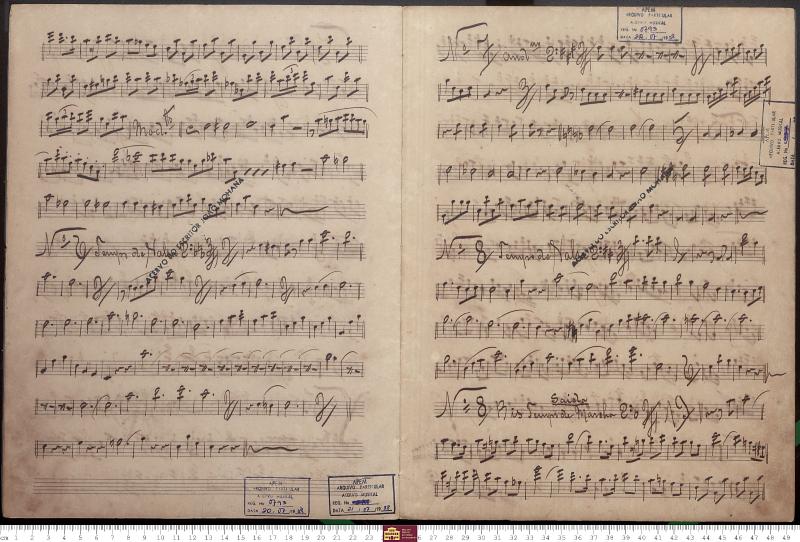 Mod.to
Nº 6 Tempo de Valsa
ACERVO DO ESCRITOR JOÃO MOHANA
APEM
ARQUIVO PARTICULAR
ACERVO MUSICAL
REG. No 0793
DATA 20.07.1988
APEM
ARQUIVO PARTICULAR
ACERVO MUSICAL
REG. No
DATA 21.07.1988
APEM
ARQUIVO PARTICULAR
ACERVO MUSICAL
REG. No 0793
DATA 20.07.1988
Nº 7
ARQUIVO PARTICULAR
ACERVO MUSICAL
REG. No
DATA
Nº 8 Tempo de Valsa
Saida
Nº 8 Bis Tempo de Marcha
cm 1 2 3 4 5 6 7 8 9 10 11 12 13 14 15 16 17 18 19 20 21 22 23 26 27 28 29 30 31 32 33 34 35 36 37 38 39 40 41 42 43 44 45 46 47 48 49